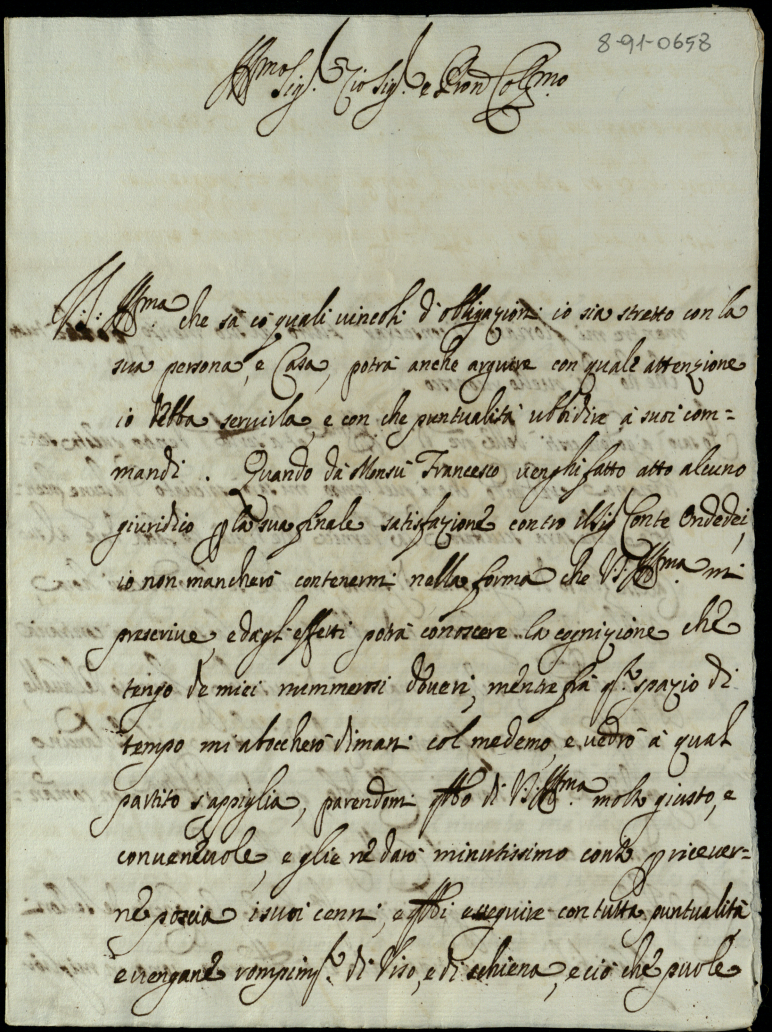 8-91-0658
Ill.mo Sig.r Zio Sig.r e Pron Col.mo
V. S. Ill.ma che sà cò quali vincoli d'obligazioni io sia stretto con la
sua persona, e Casa, potrà anche arguire con quale attenzione
io debba servirla, e con che puntualità ubbidire à suoi com=
mandi. Quando dà Monsù Francesco venghi fatto atto alcuno
giuridico p la sua finale satisfazione contro il Sig.r Conte Ondedei,
io non mancherò contenermi nella forma che V. S. Ill.ma mi
prescrive, e dagl'effetti potrà conoscere la cognizione che
tengo de miei nummerosi doveri, mentre frà q.to spazio di
tempo mi aboccherò dimani col medemo, e vedrò à qual
partito s'appiglia, parendomi di V. S. Ill.ma molto giusto, e
convenevole, e glie ne darò minutissimo conto p ricever=
ne poscia i suoi cenni, e esseguire con tutta puntualità
e vengane rompim.to di viso, e di schiena, e ciò che puole